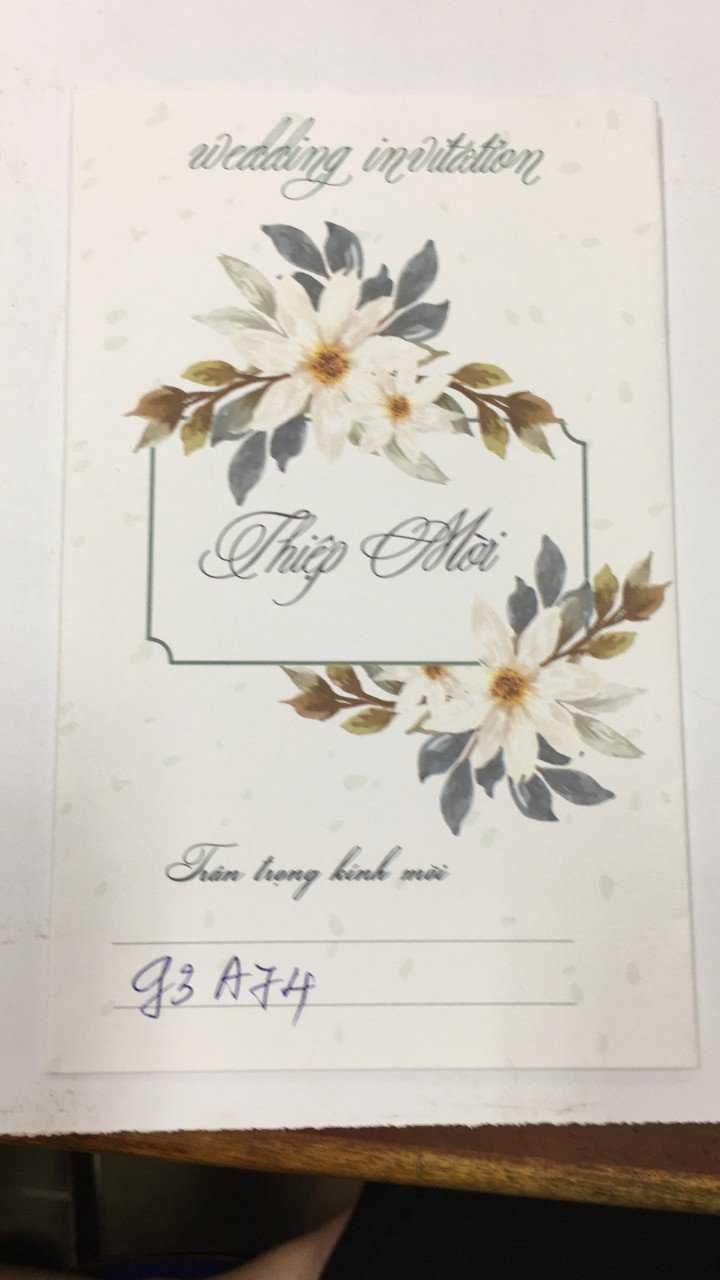 wedding invitation
Thiệp Mời
Trân trọng kính mời
g3 A74